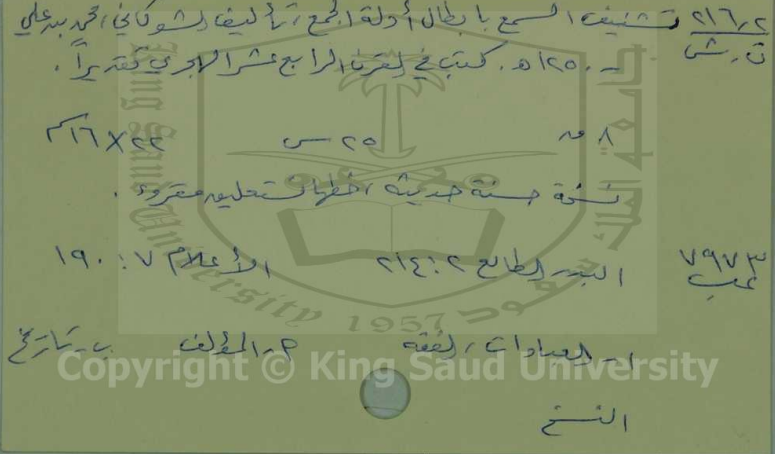 ٢١٦٫٢ تشنيف السمع بابطال أدلة الجمع، تأليف الشوكاني، محمد بن علي
ت.ش – ١٢٥٠هـ. كتب في القرن الرابع عشر الهجري تقديراً.
٨ ق ٢٥ س ٢٢×١٦سم
نسخة حسنة حديثة، خطها نستعليق مقروء.
٧٩٧٣ البدر الطالع ٢: ٢١٤ الأعلام ٧: ١٩٠
١- العبادات، الفقه ٢- المؤلف ب- تاريخ
النسخ
King Saud University
1957
Copyright © King Saud University